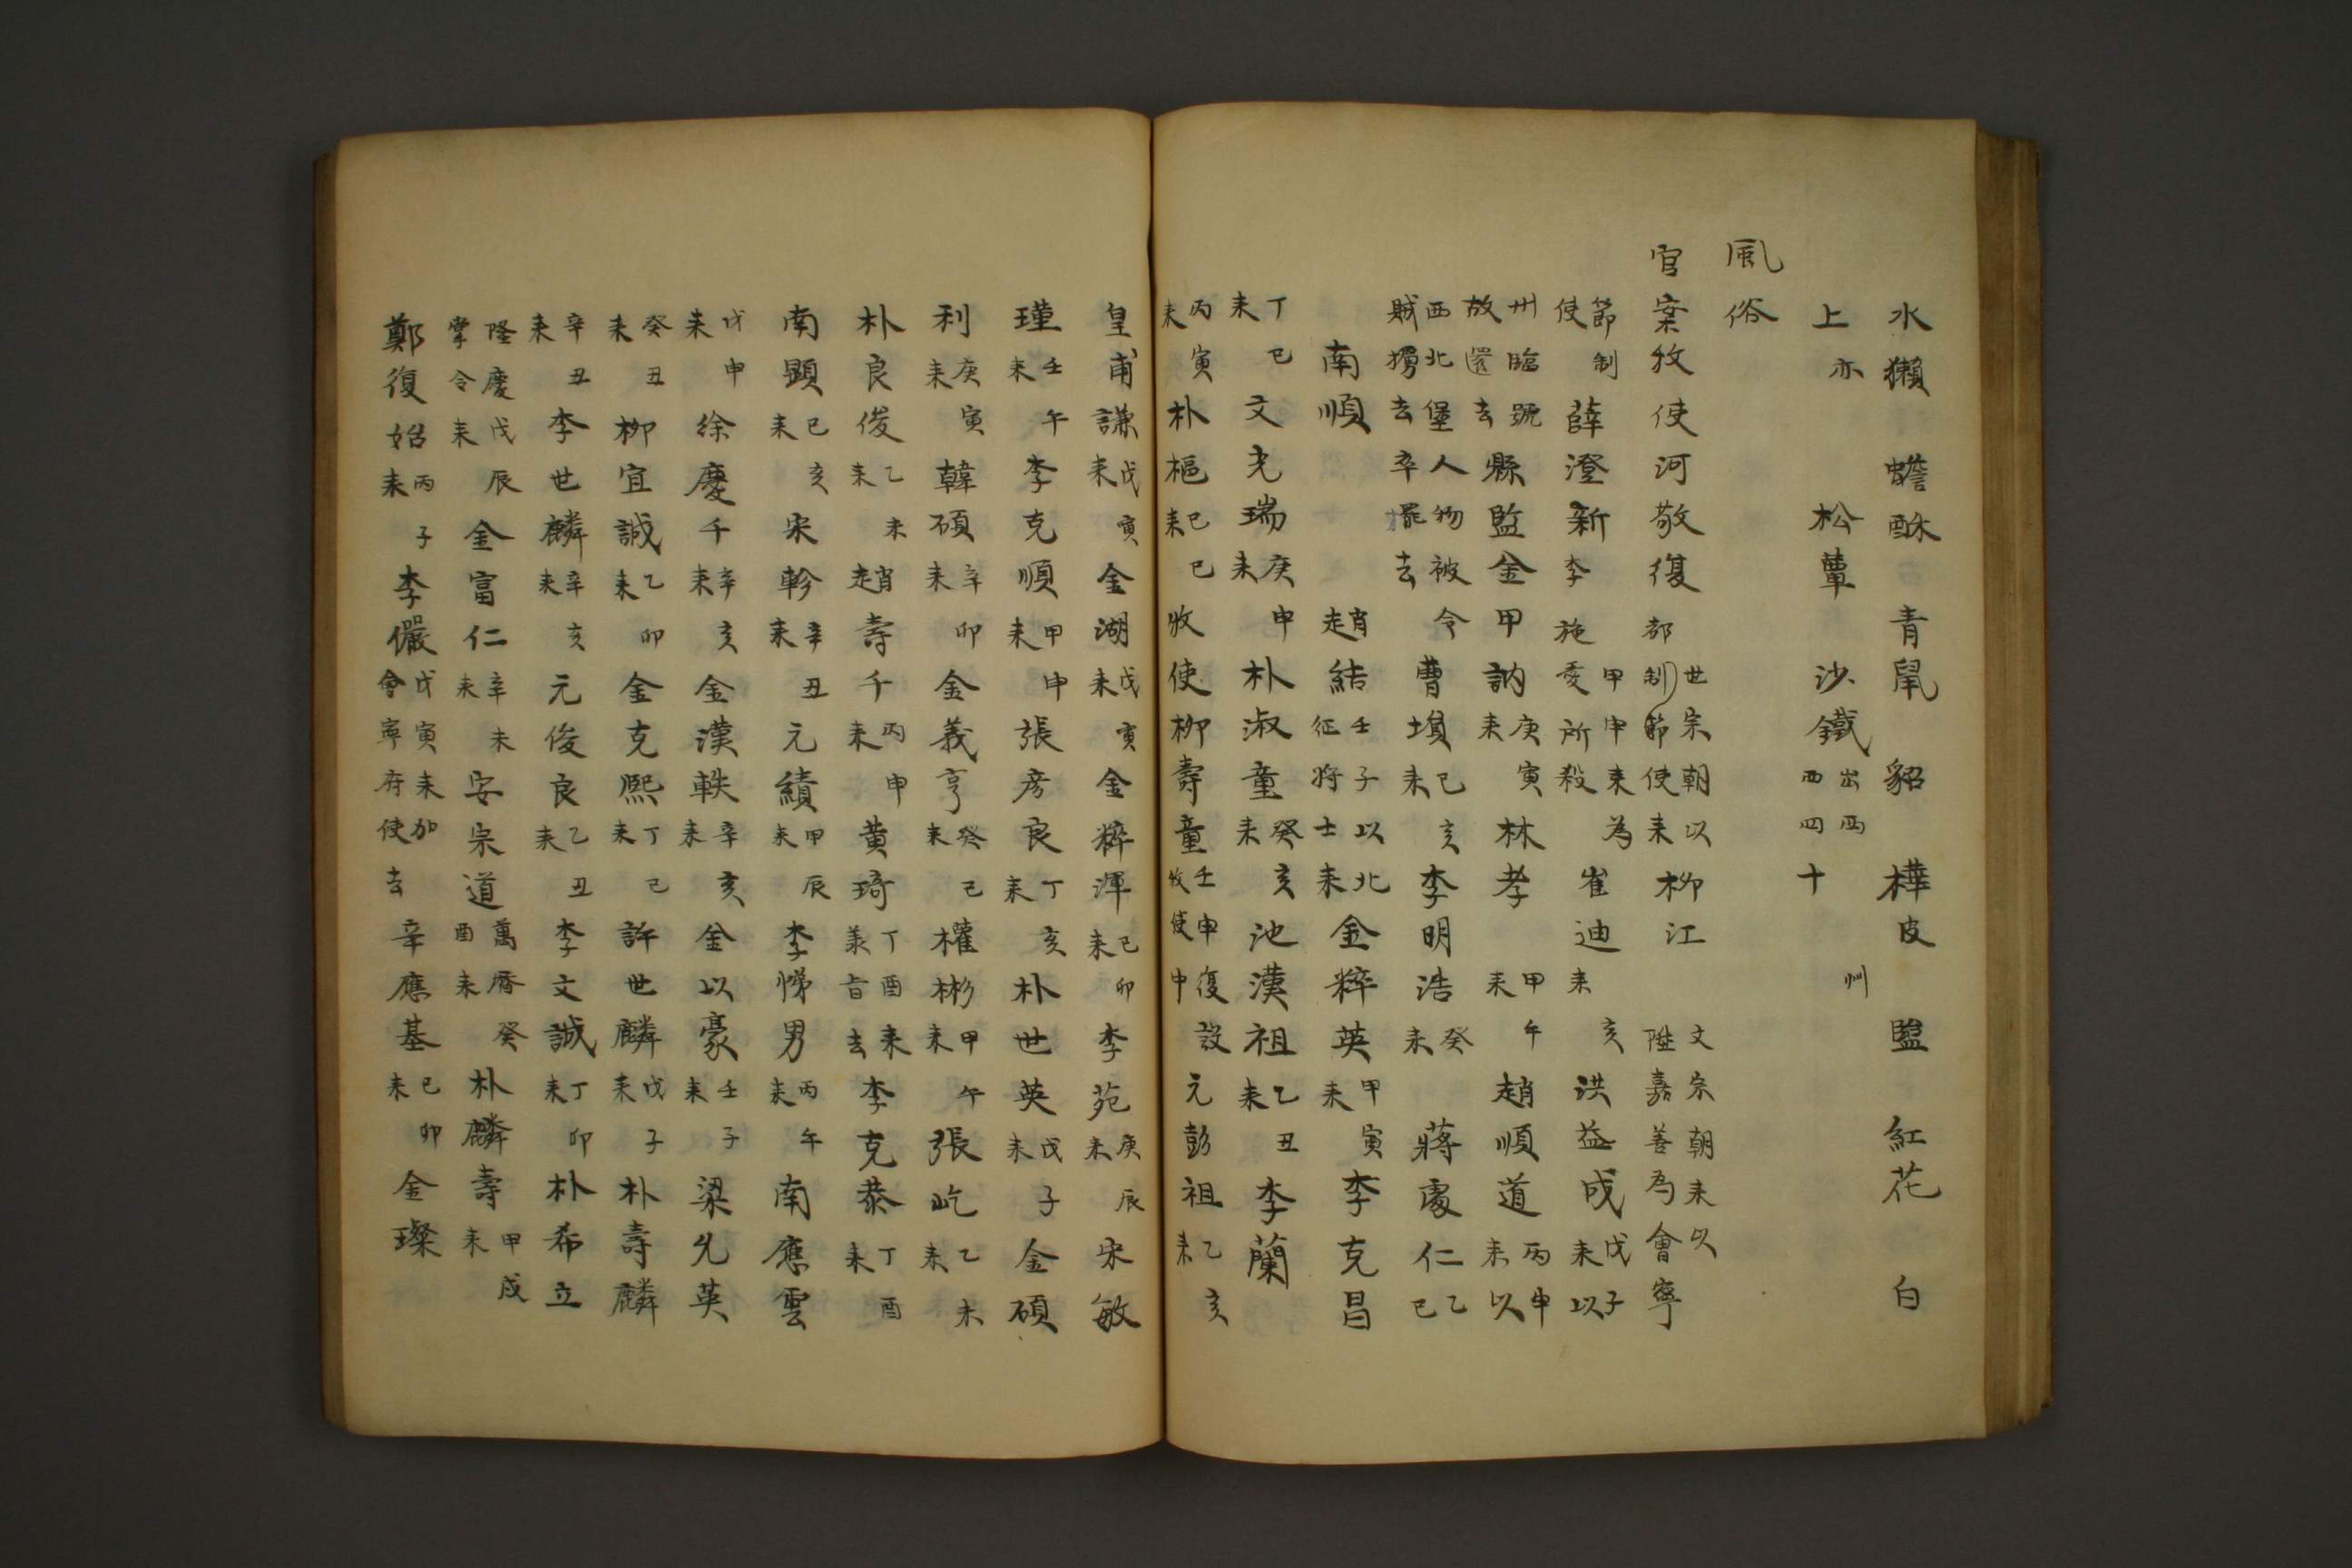 水獺 蟾酥 青鼠 貂 樺皮 監 紅花 白
上亦 松蕈 沙鐵出西州西四十
風俗
官案牧使河敬復世宗朝以都制節使来柳江文宗朝来以陞嘉善為會寧
節制使薛澄新甲申来為李施愛所殺崔迪亥来洪益成戊子来以
州臨號故還去縣監金甲訥庚寅来林孝甲午来趙順道丙申来以
西北堡人物被令賊擄去卒罷去曹塤己亥来李明浩癸来蔣處仁乙巳
南順趙結壬子以北征將士来金粹英甲寅来李克昌
丁巳来文光瑞庚申来朴淑童癸亥来池漢祖乙丑来李蘭
丙寅来朴樞己巳来收使柳壽童壬申復設牧使申元彭祖乙亥来
皇甫謙戊寅来金湖戊寅来金粹渾己卯来李苑庚辰来宋敏
瑾壬午来李克順甲申来張彦良丁亥来朴世英戊子来金碩
利庚寅来韓碩辛卯来金義亨癸巳来權彬甲午来張屹乙未来
朴良俊乙未来趙壽千丙申来黄琦丁酉来羕旨去李克恭丁酉来
南顕己亥来宋軫辛丑来元績甲辰来李悌男丙午来南應雲
戊申来徐慶千辛亥来金漢軼辛亥来金以豪壬子来梁允英
癸丑来柳宜誠乙卯来金克熙丁巳来許世麟戊子来朴壽麟
辛丑来李世麟辛亥来元俊良乙丑来李文誠丁卯来朴希立
隆慶戊辰掌令来金富仁辛未来安宗道萬曆癸酉来朴麟壽甲戌来
鄭復始丙子来李儼戊寅来加會寧府使去辛應基己卯来金璨